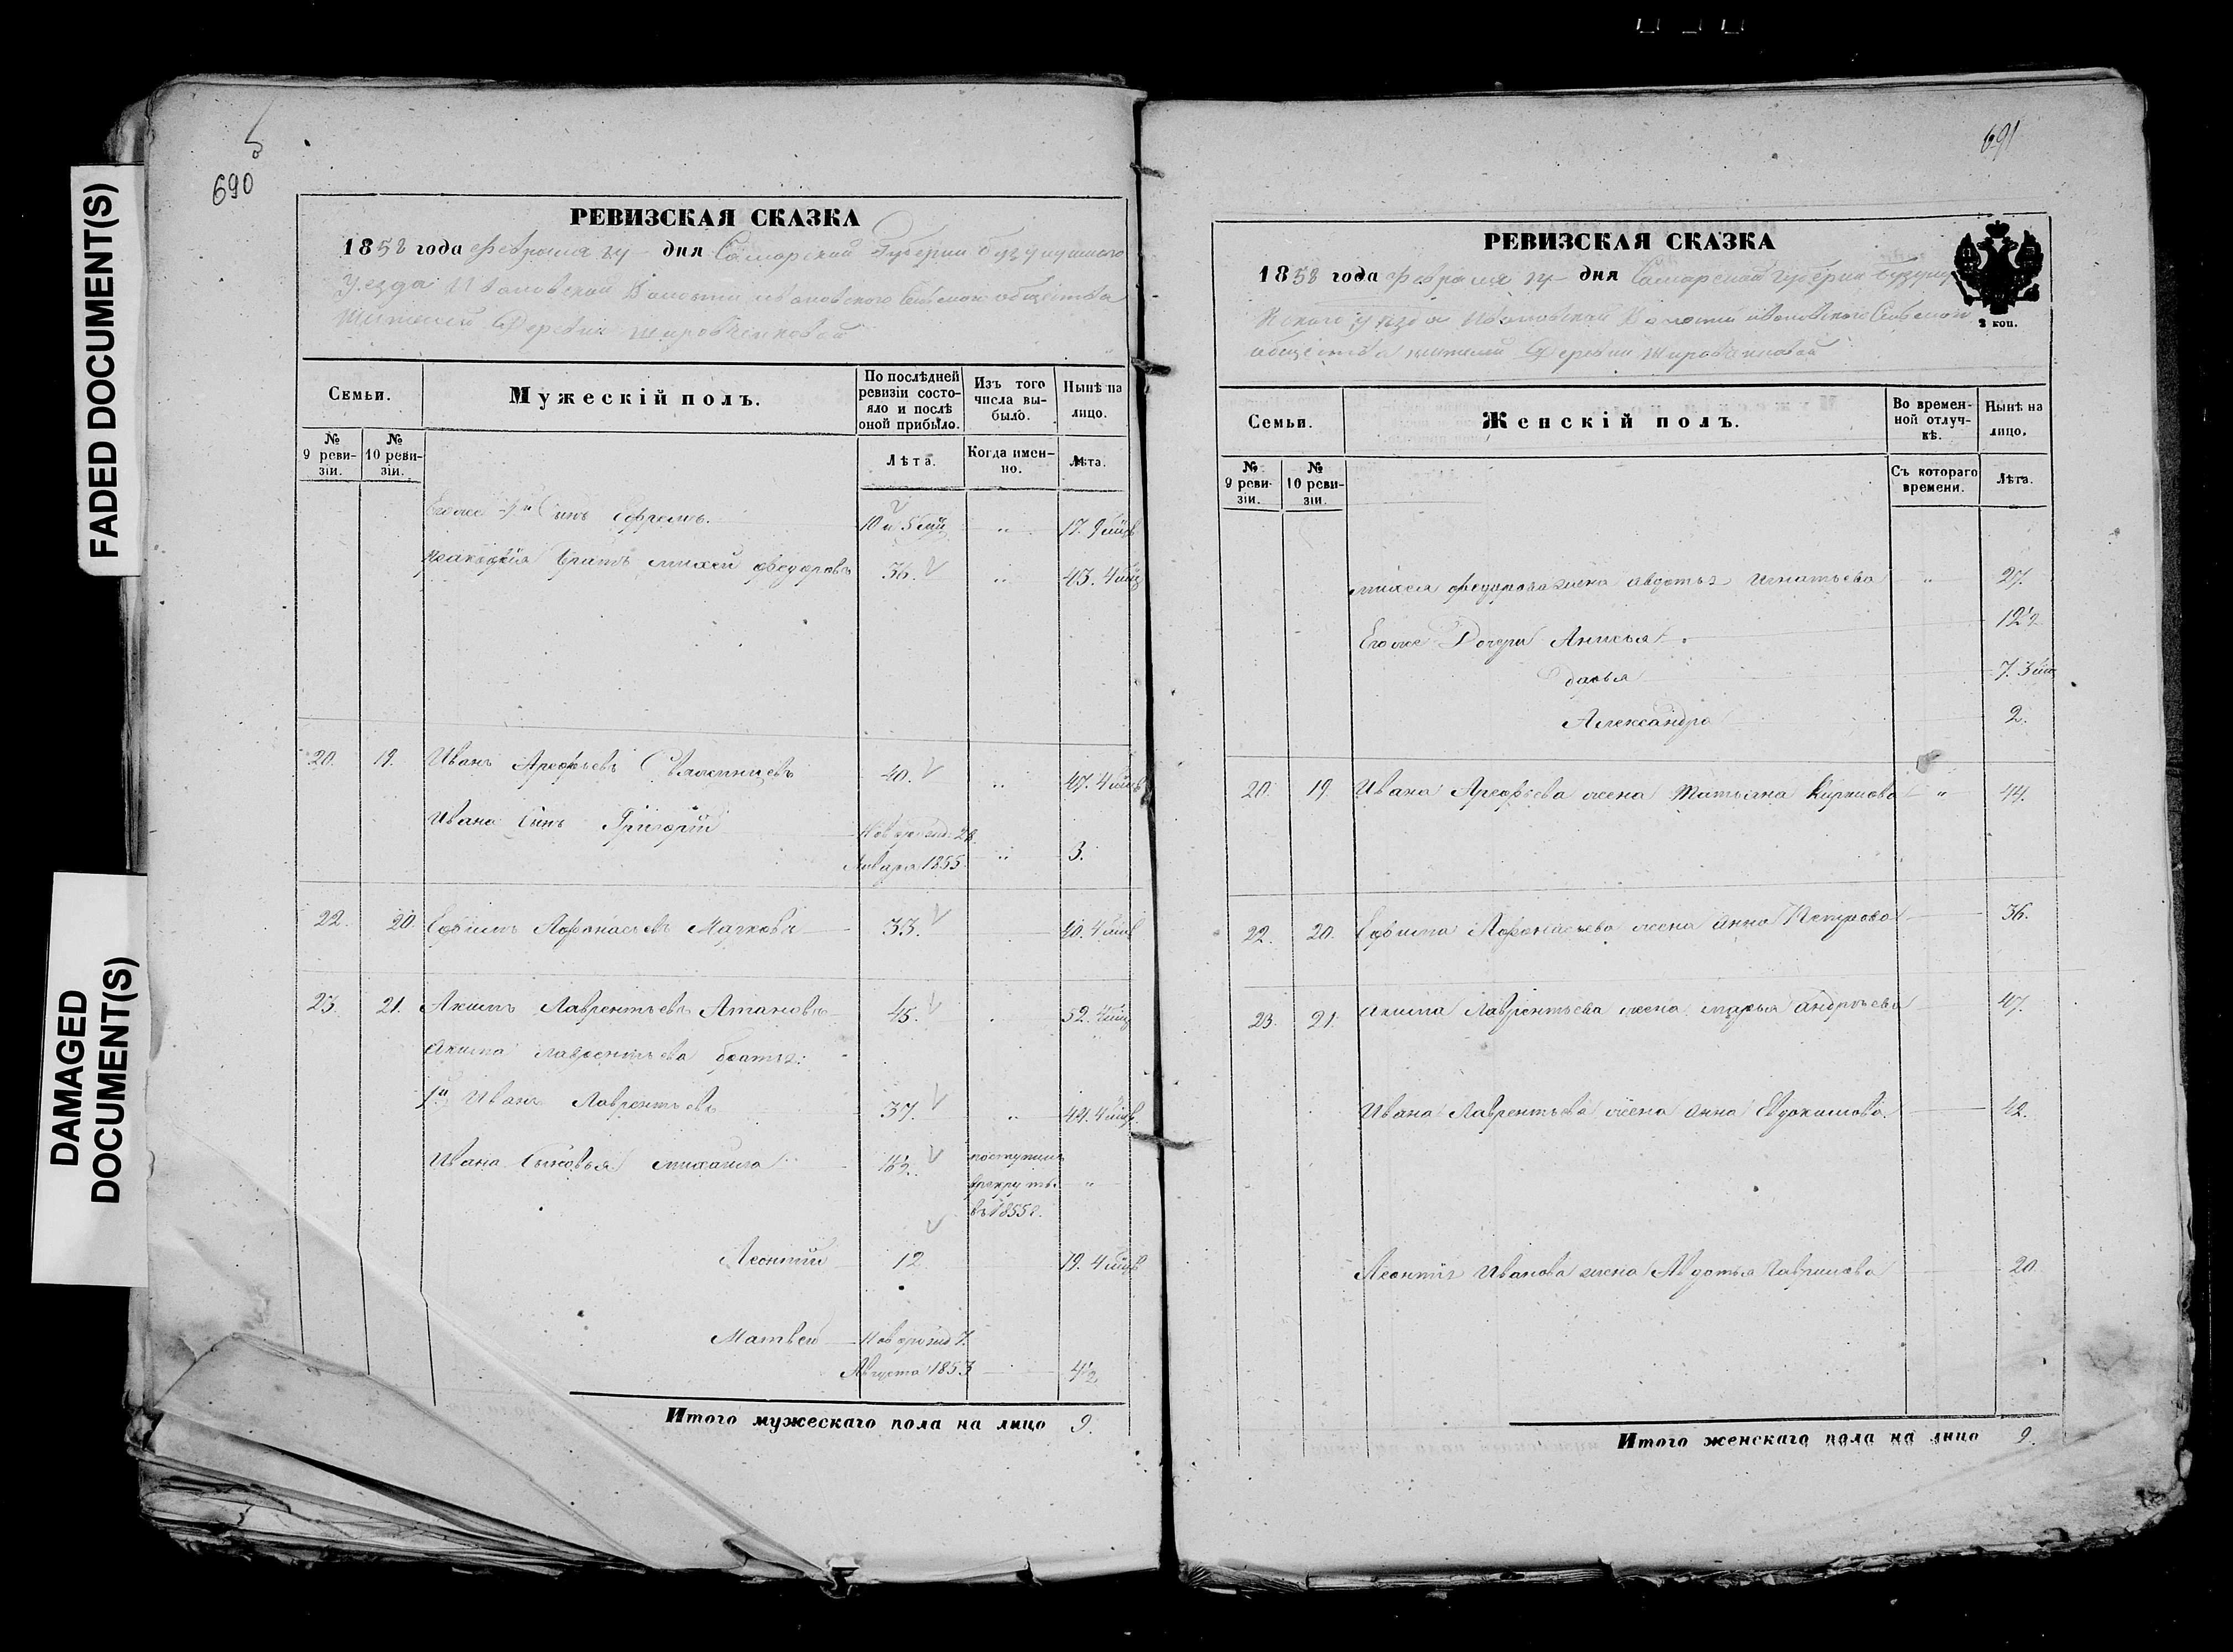 FADED DOCUMENT(S)
DAMAGED
DOCUMENT(S)
690
РЕВИЗСКАЯ СКАЗКА
1858 года Февраля дня Самарской Губернии Бузулукского
Уезда Ивановской Волости Ивановского Сельского общества
Жителей Деревни
Семьи.
Мужескій полъ.
По послѣдней ревизіи состояло и послѣ оной прибыло.
Изъ того числа выбыло.
Нынѣ на лицо.
№ 9 ревизіи.
№ 10 ревизіи.
Лѣта.
Когда именно.
Лѣта.
Егоже Сынъ Ефремъ. 10 и 5 " 17. 9
братъ Михей Федоровъ 36. " 43. 4
20. 19. Иванъ Арефьевъ 40. " 47. 4
Ивана Сынъ Григорій Новорожд. 28
Января 1855. " 3.
22. 20. Ефимъ Афонасьевъ 33. 40. 4
23. 21. Акимъ Лаврентьевъ 45. 52. 4
Акима Лаврентьева братья:
1й Иванъ Лаврентьевъ 37. " 44. 4
Ивана Сыновья Михаила 16½. поступилъ
врекруты "
въ 1855 г.
Леонтий 12 19. 4
Матвей Новорожд 7.
Августа 1853 4½
Итого мужескаго пола на лицо 9.
691
РЕВИЗСКАЯ СКАЗКА
1858 года Февраля дня Самарской Губернии
уезда Ивановской Волости Ивановского Сельского
общества жителей Деревни
2 коп.
Семьи.
Женскій полъ.
Во временной отлучкѣ.
Нынѣ на лицо.
№ 9 ревизіи.
№ 10 ревизіи.
Съ котораго времени.
Лѣта.
Михея Федорова жена Авдотья Игнатьева " 27.
Егоже Дочери Анисья 12½
Дарья 7. 3
Александра 2.
20. 19. Ивана Арефьева жена Татьяна " 44.
22. 20. Ефима Афонасьева жена Анна Петрова 36.
23. 21. Акима Лаврентьева жена Марья Андреева 47.
Ивана Лаврентьева жена Анна Евдокимова. 42.
Леонтия Иванова жена Авдотья Гаврилова 20
Итого женскаго пола на лицо 9.